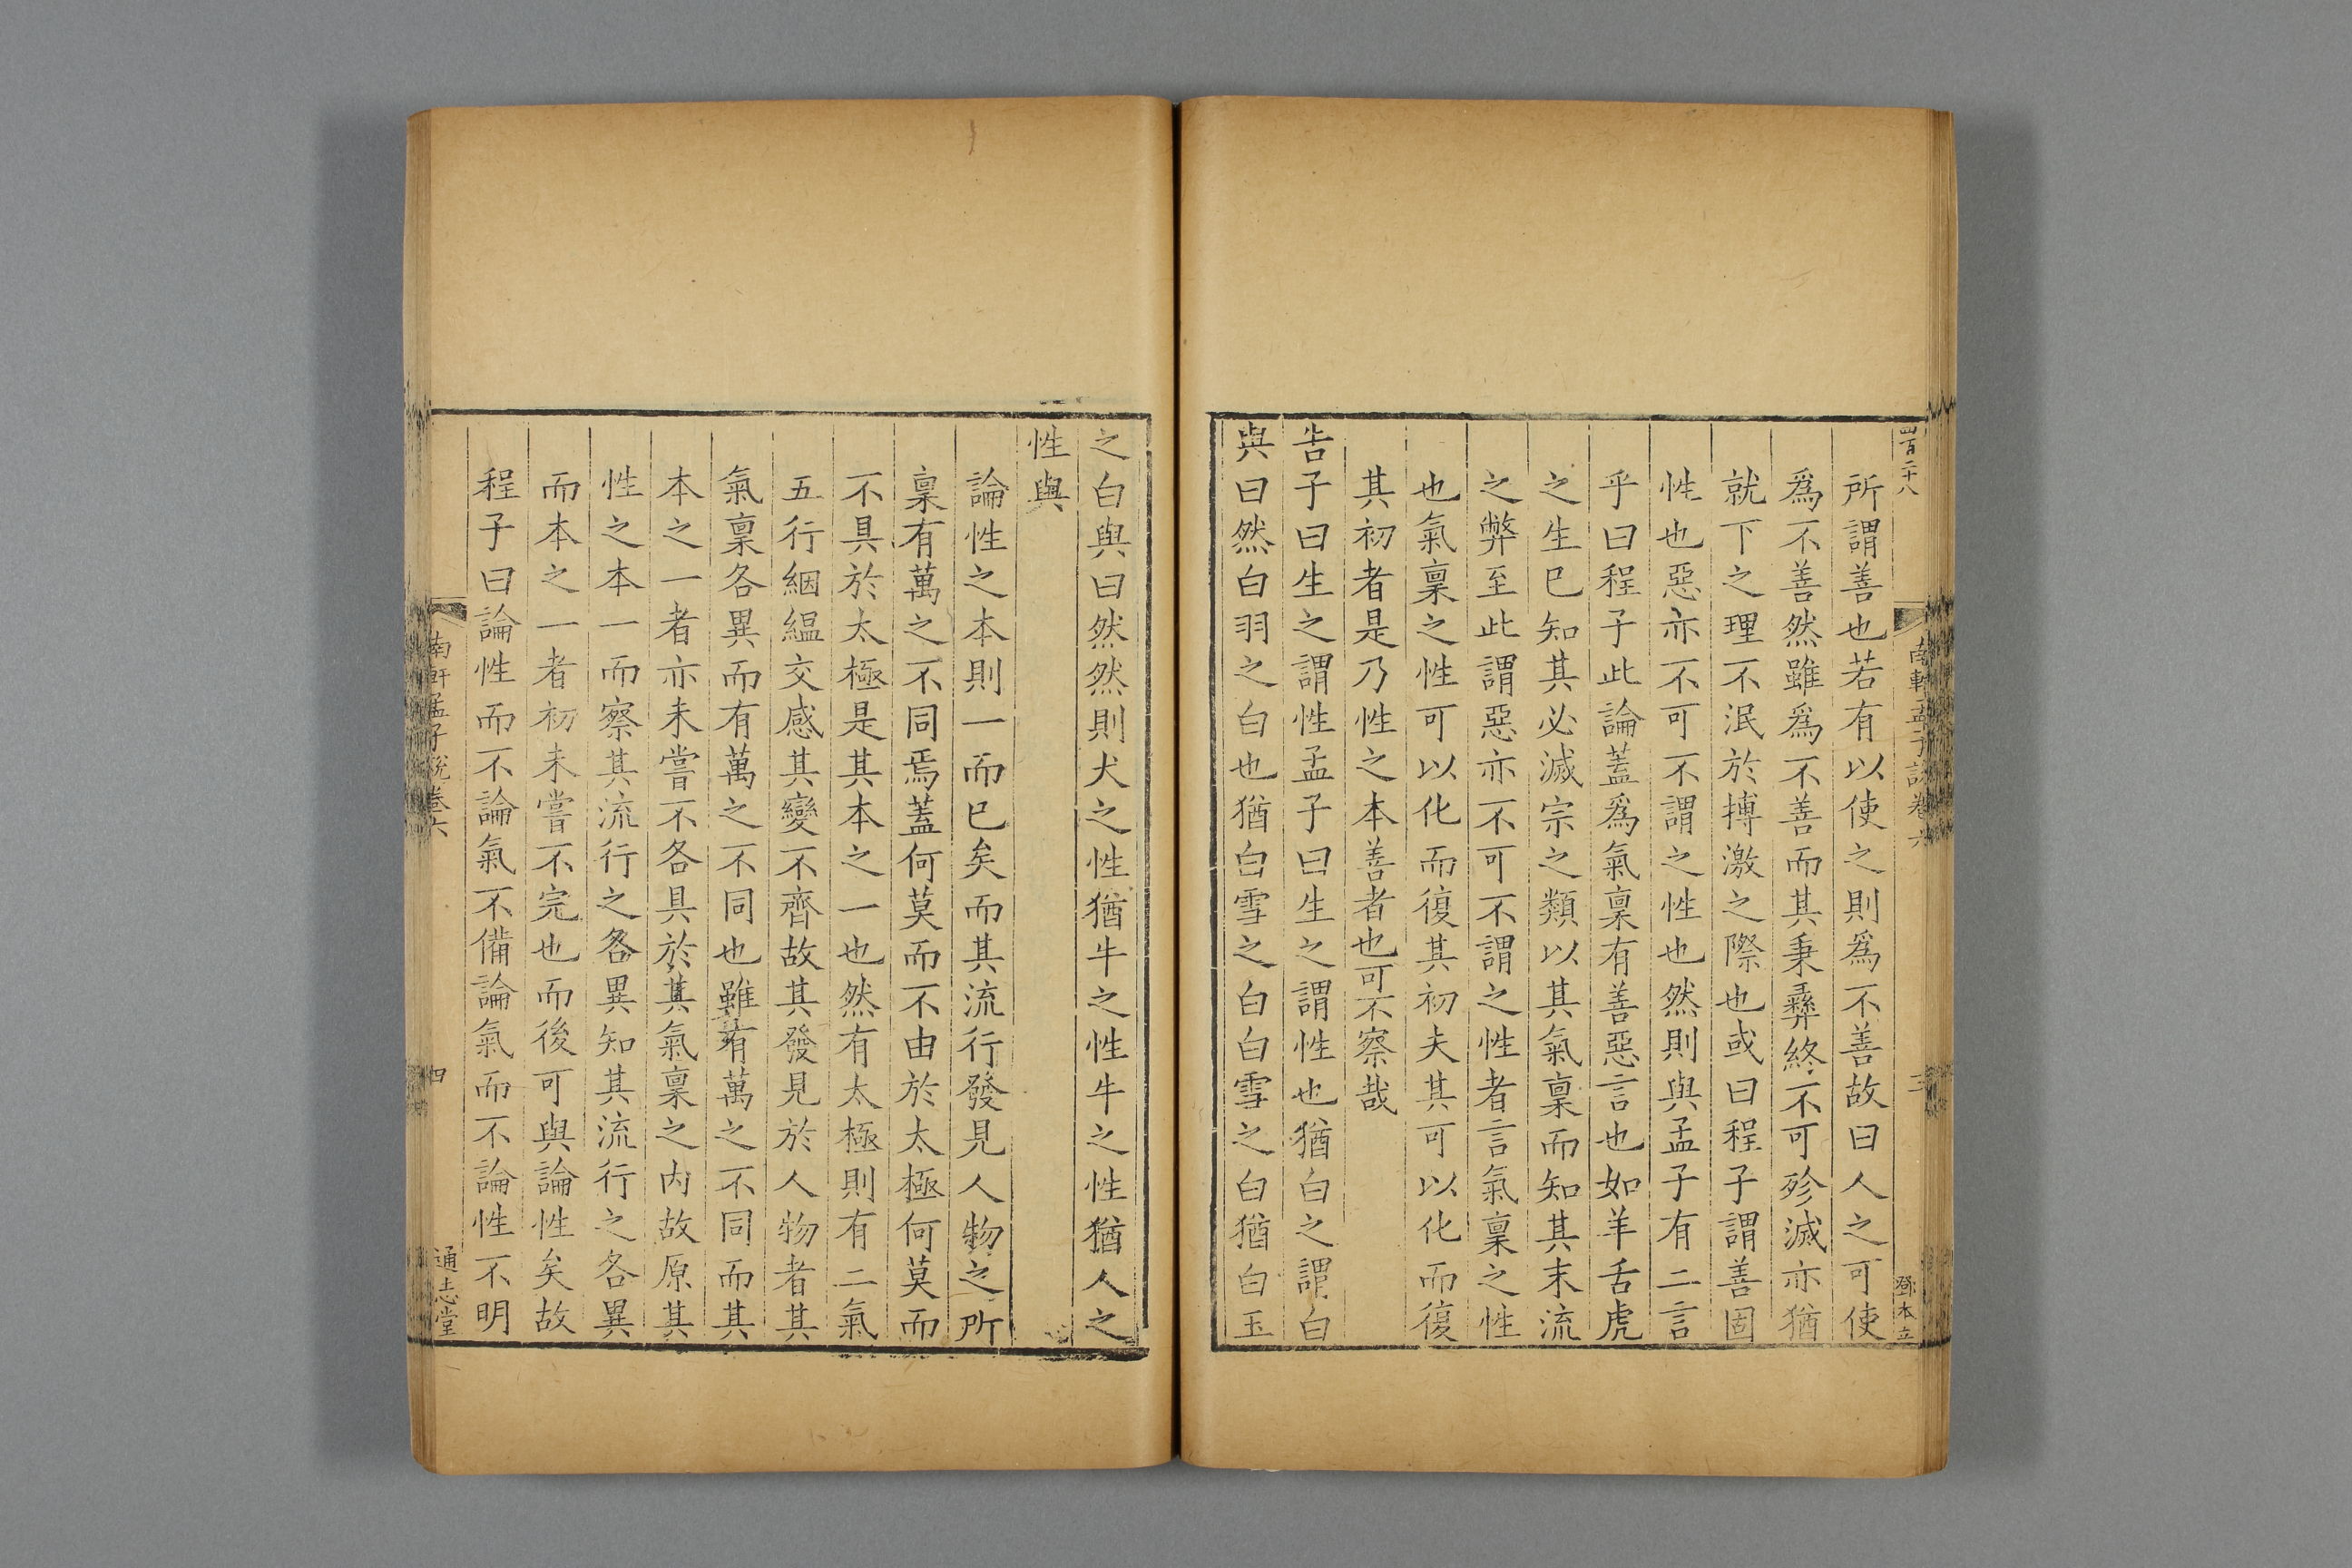 四百二十八
南軒孟子說卷六
三
鄧本立
所謂善也若有以使之則爲不善故曰人之可使
爲不善然雖爲不善而其秉彞終不可殄滅亦猶
就下之理不泯於搏激之際也或曰程子謂善固
性也惡亦不可不謂之性也然則與孟子有二言
乎曰程子此論蓋爲氣稟有善惡言也如羊舌虎
之生已知其必滅宗之類以其氣稟而知其末流
之弊至此謂惡亦不可不謂之性者言氣稟之性
也氣稟之性可以化而復其初夫其可以化而復
其初者是乃性之本善者也可不察哉
告子曰生之謂性孟子曰生之謂性也猶白之謂白
與曰然白羽之白也猶白雪之白白雪之白猶白玉
之白與曰然然則犬之性猶牛之性牛之性猶人之
性與
論性之本則一而已矣而其流行發見人物之所
稟有萬之不同焉蓋何莫而不由於太極何莫而
不具於太極是其本之一也然有太極則有二氣
五行絪縕交感其變不齊故其發見於人物者其
氣稟各異而有萬之不同也雖有萬之不同而其
本之一者亦未嘗不各具於其氣稟之内故原其
性之本一而察其流行之各異知其流行之各異
而本之一者初未嘗不完也而後可與論性矣故
程子曰論性而不論氣不備論氣而不論性不明
南軒孟子說卷六
四
通志堂